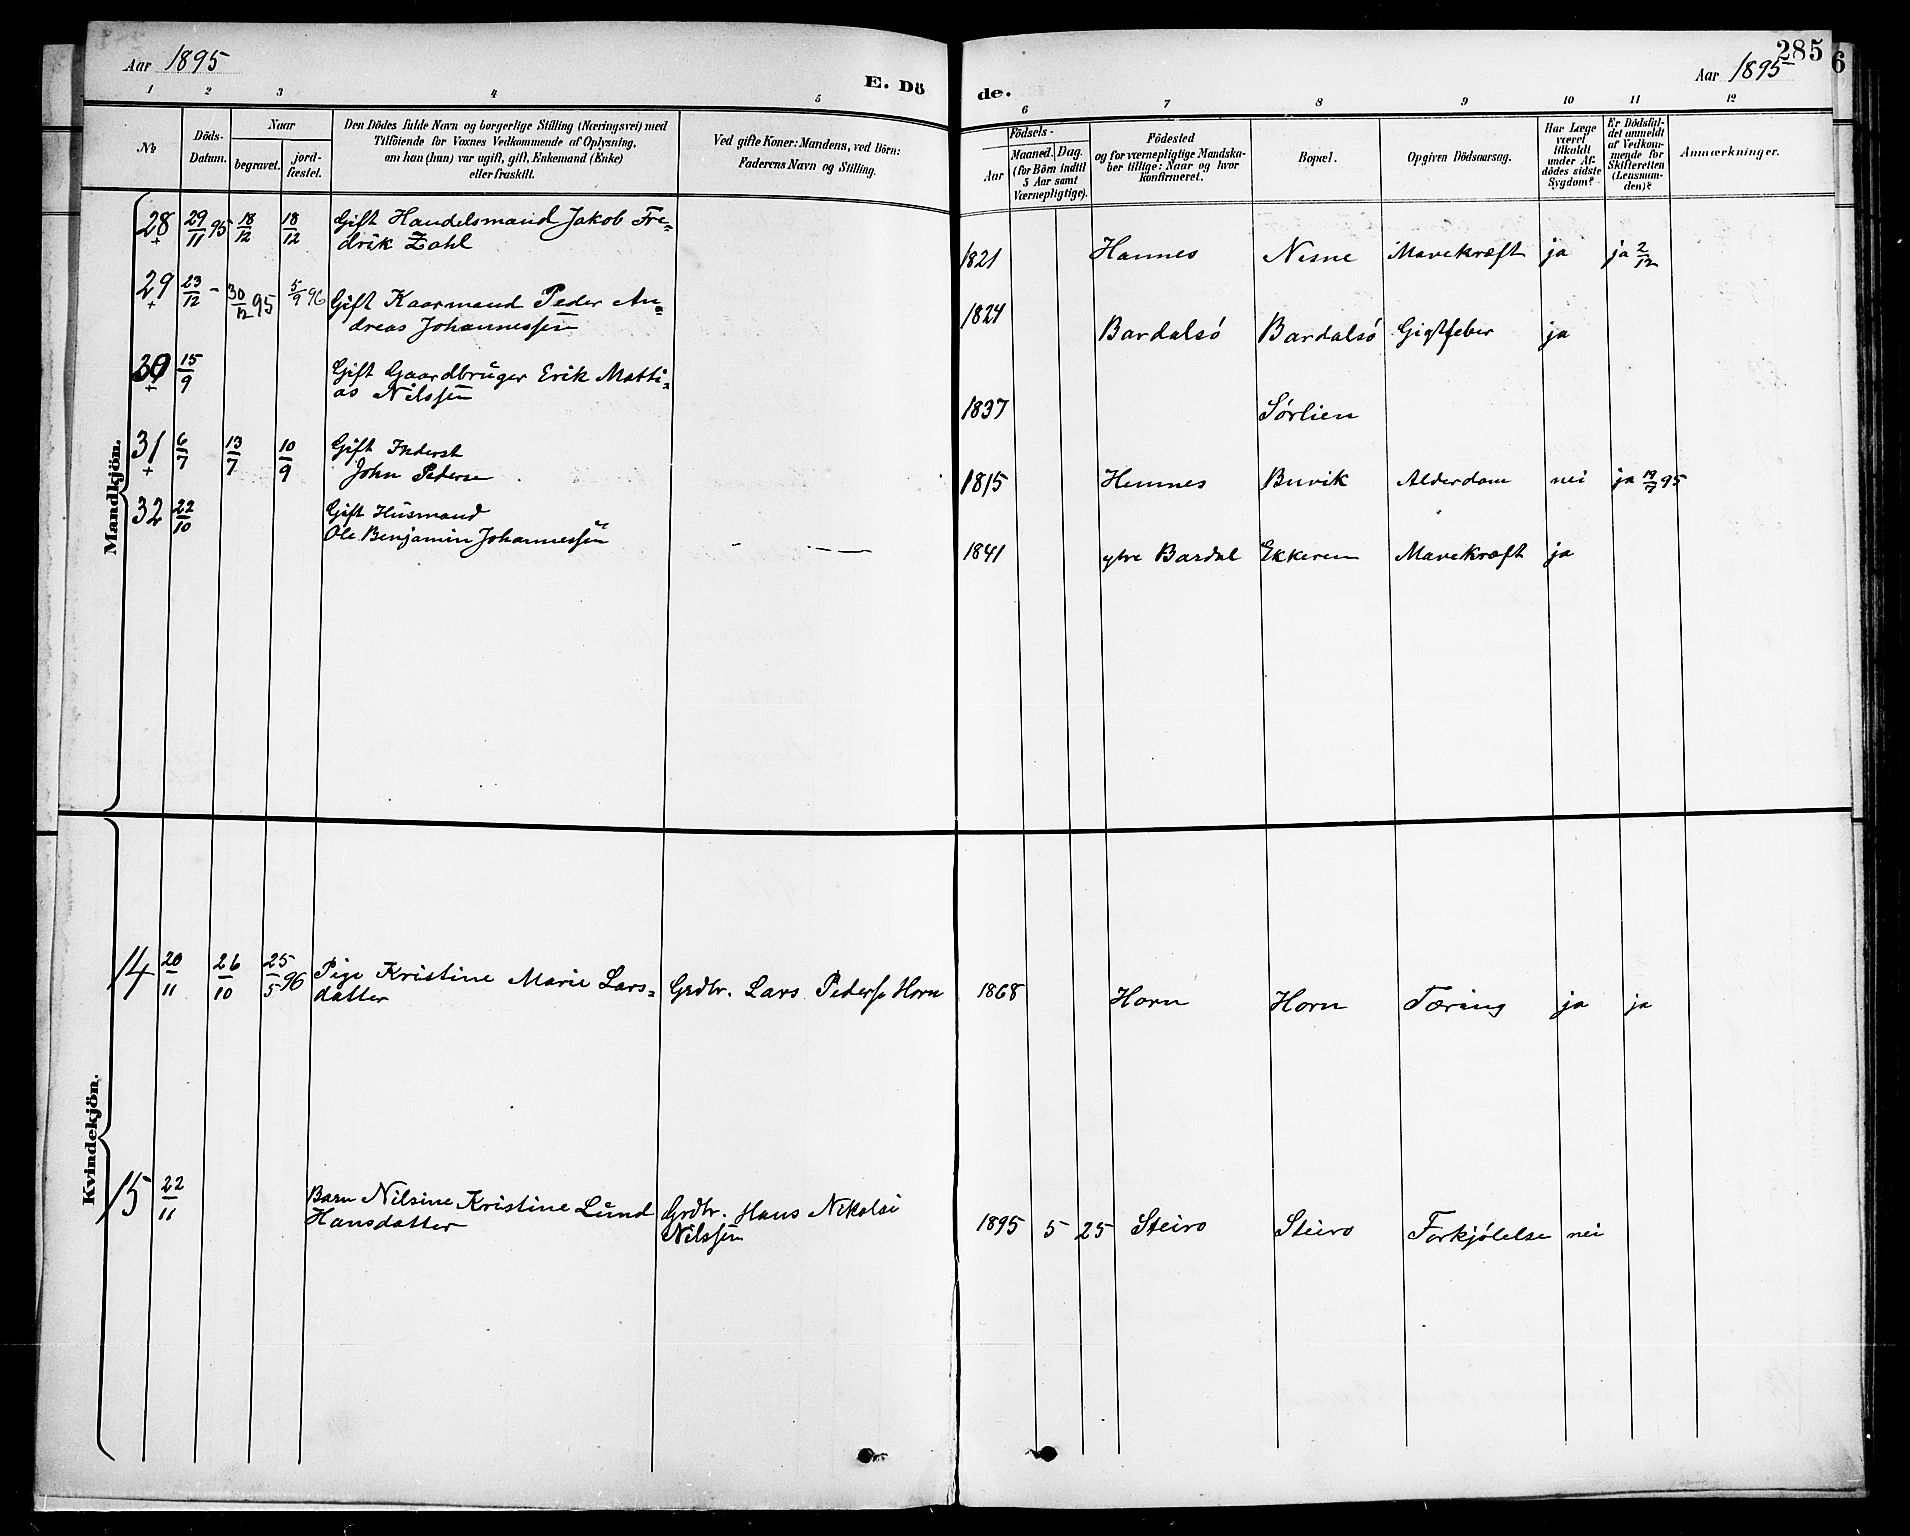 Aar 1895
E. Dö
de.
Aar 1895
285
6
1 2 3 4 5
6 7 8 9 10 11 12
No
Döds-
Datum.
Naar
begravet.
jord-
fæstet.
Den Dödes fulde Navn og borgerlige Stilling (Næringsvei) med
Tilföiende for Voxnes Vedkommende af Oplysning,
om han (hun) var ugift, gift, Enkemand (Enke)
eller fraskilt.
Ved gifte Koner: Mandens, ved Börn:
Faderens Navn og Stilling.
Födsels-
Aar
Maaned. Dag.
(for Börn indtil
5 Aar samt
Værnepligtige).
Födested
og for værnepligtige Mandska-
ber tillige: Naar og hvor
konfirmeret.
Bopæl.
Opgiven Dödsaarsag.
Har Læge
været
tilkaldt
under Af-
dödes sidste
Sygdom?
Er Dödsfal-
det anmeldt
af Vedkom-
mende for
Skifteretten
(Lensman-
den)?
Anmærkninger.
Mandkjön.
28 + 29/11 95 18/12 18/12 Gift Handelsmand Jakob Fre-
drik Zahl
1821 Hannes Nesne Mavekræft ja ja 2/12
29 + 23/12 - 30/12 95 5/9 96 Gift Kaarmand Peder An-
dreas Johannessen
1824 Bardalsö Bardalsö Gigtfeber ja
30 + 15/9 Gift Gaardbruger Erik Matti-
as Nilssen
1837 Sørlien
31 + 6/7 13/7 10/9 Gift Inderst
John Pedersen
1815 Hemnes Buvik Alderdom nei ja 19/7 95
32 22/10 Gift Husmand
Ole Benjamin Johannessen
1841 ytre Bardal Ekkeren Mavekræft ja
Kvindekjön.
14 20/11 26/10 25/5 96 Pige Kristine Marie Lars-
datter
Grdbr. Lars Peders. Horn
1868 Horn Horn Tæring ja ja
15 22/11 Barn Nilsine Kristine Lund
Hansdatter
Grdbr. Hans Nikolai
Nilssen
1895 5 25 Steiro Steiro Forkjölelse nei